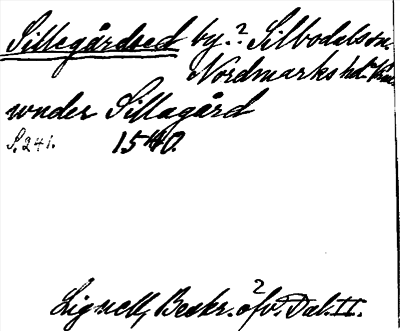 Sillegårdsed by.? Silbodalsn.
Nordmarks hd. Vrm.
under Sillagård
S. 241. 1540.
Lignell, Beskr. öfv. Dal. II.